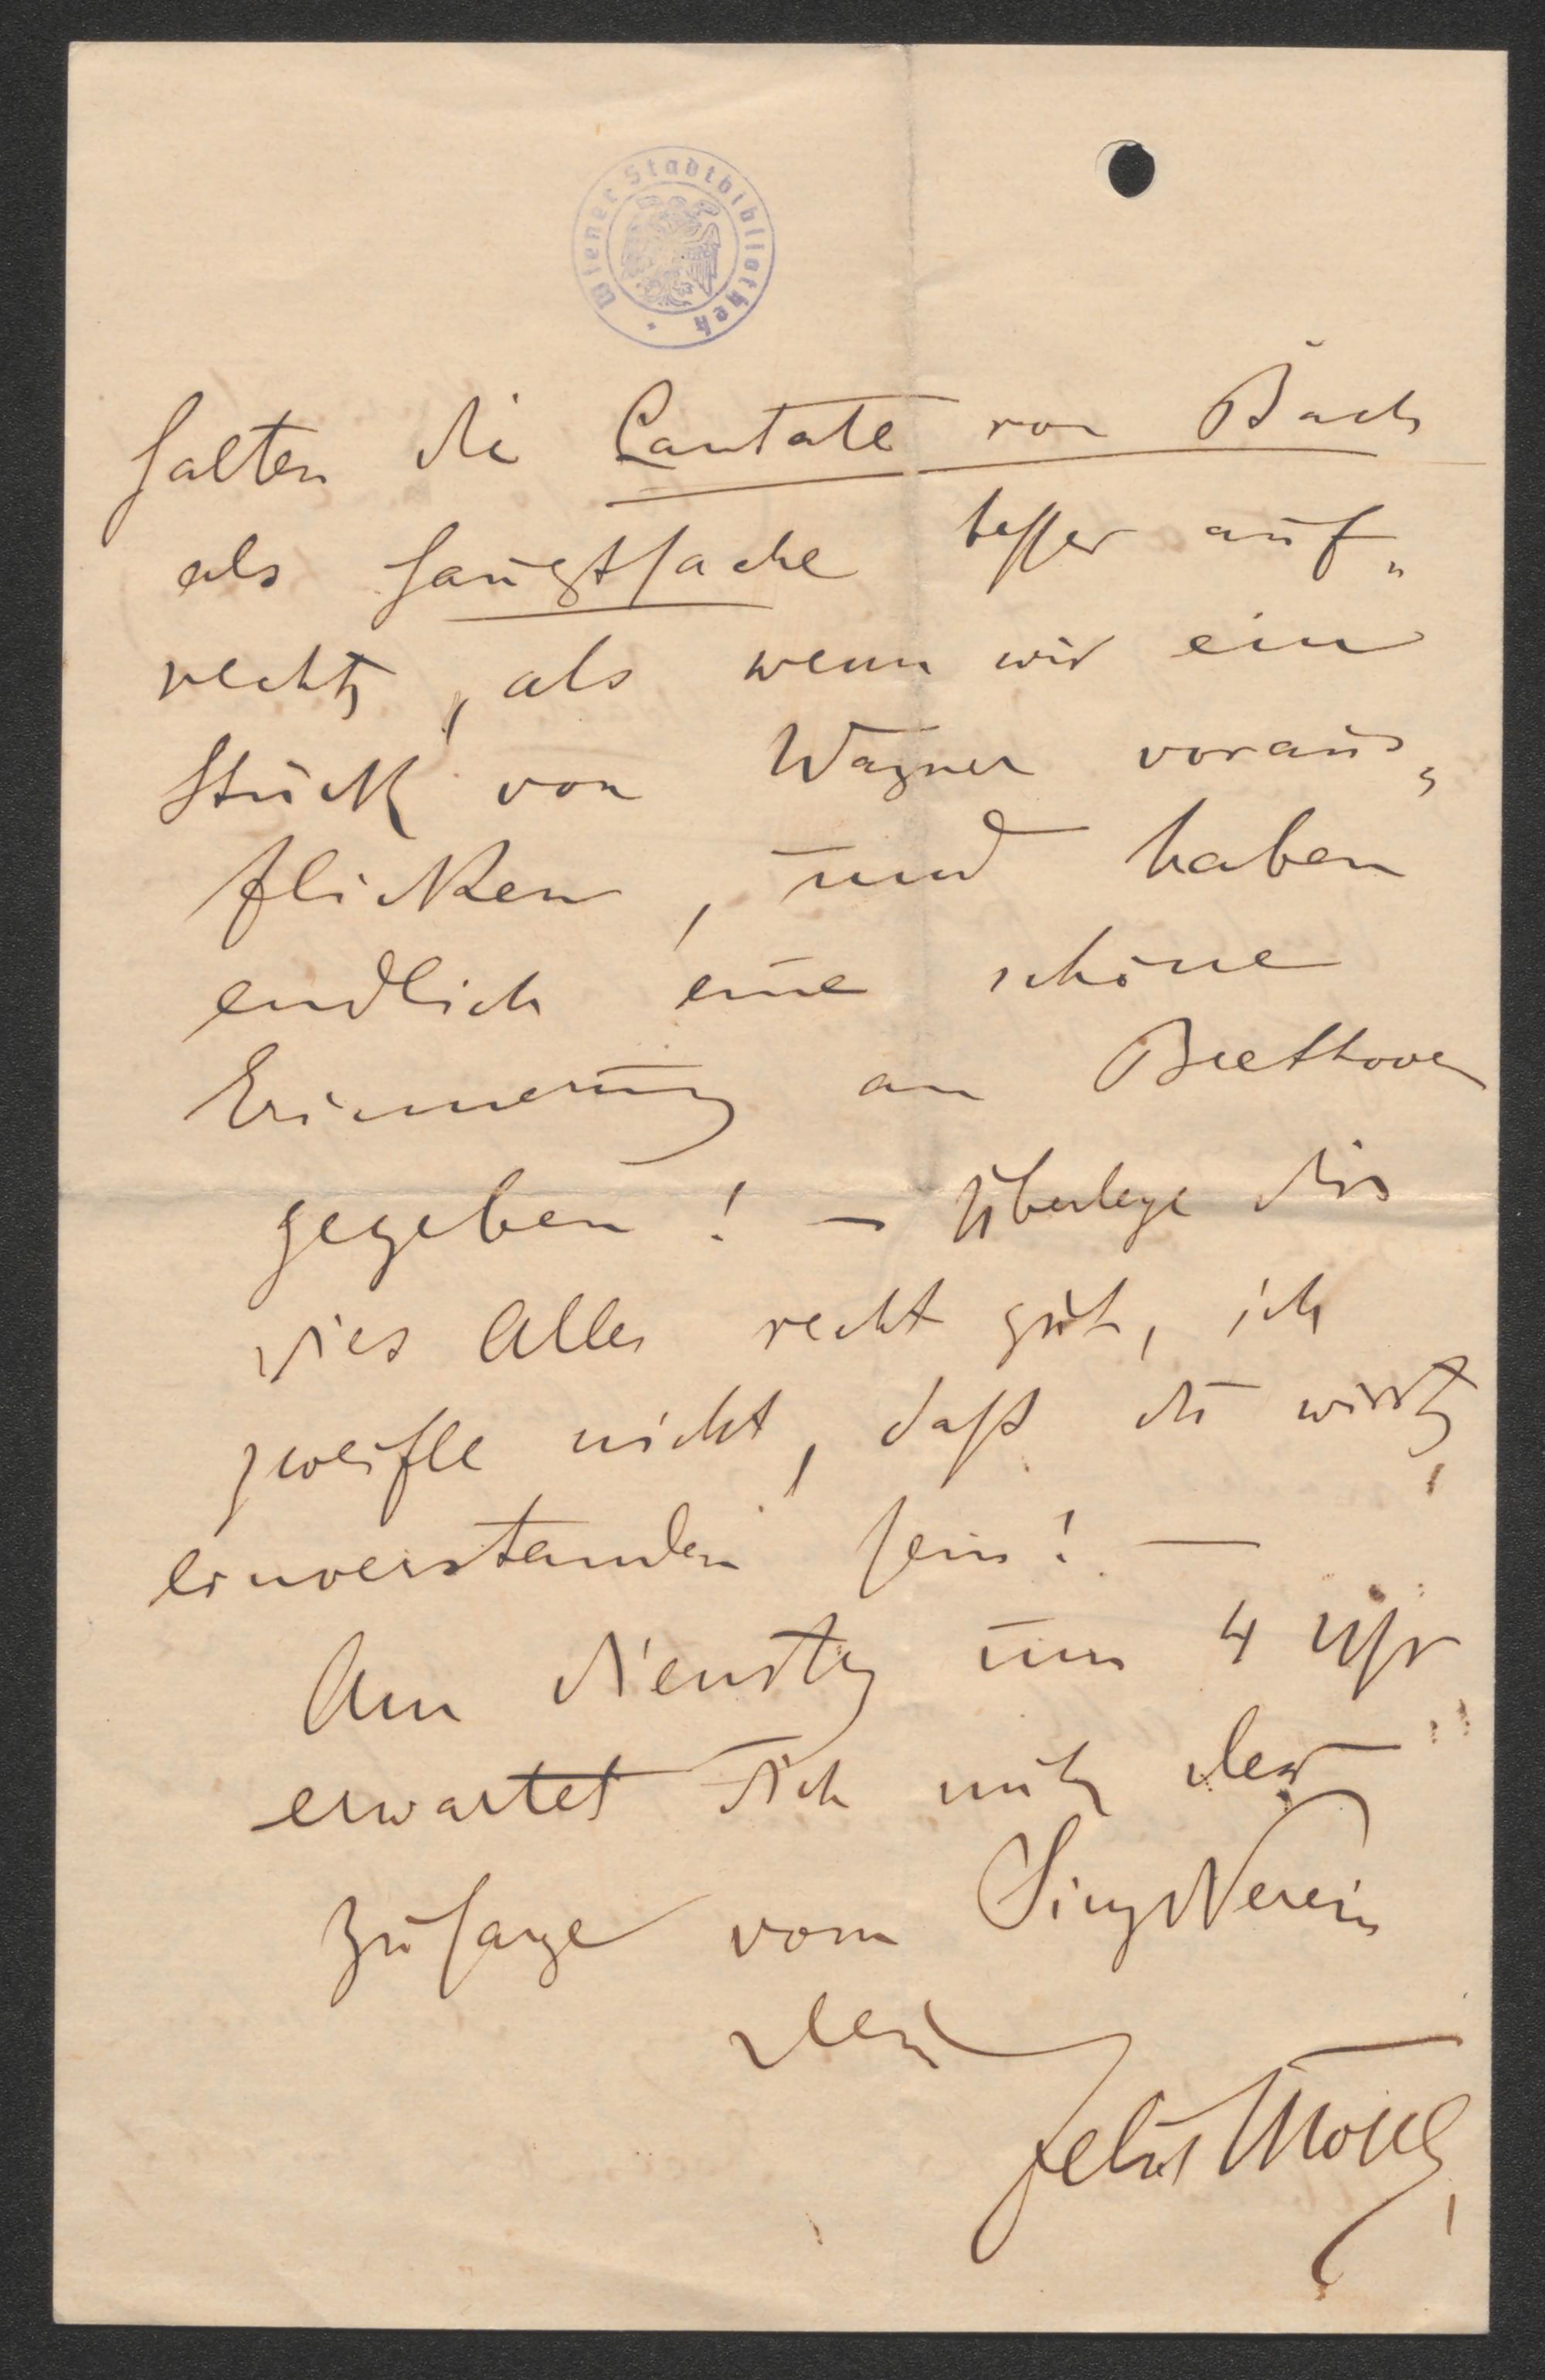 Wiener Stadtbibliothek
halten die Cantate von Bach
als Hauptsache besser auf„
recht, als wenn wir ein
Stück von Wagner voraus„
flicken, und haben
endlich eine schöne
Erinnerung an Beethoven
gegeben! – Überlege dir
dies Alles recht gut, ich
zweifle nicht, daß du wirst
einverstanden sein! –
Am Dienstag um 4 Uhr
erwartet dich mit der
Zusage vom SingVerein
dein
Felix Mottl